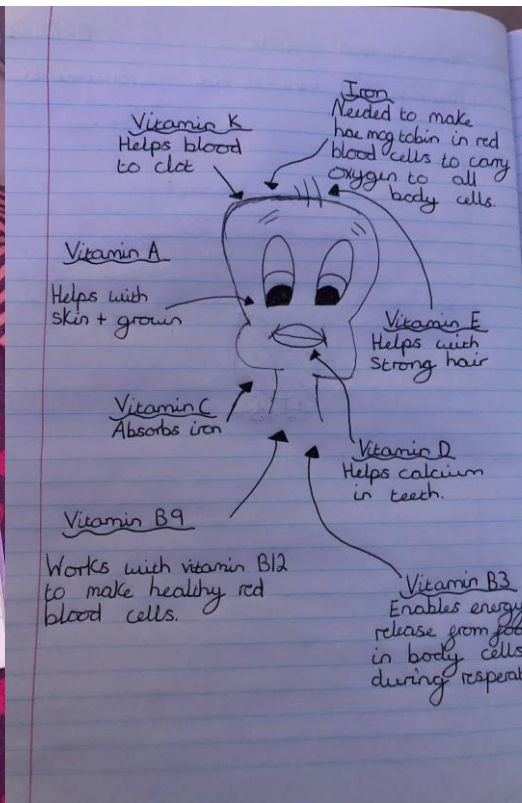 Iron
Needed to make
haemogtobin in red
blood cells to carry
oxygen to all
body cells.
Vitamin K
Helps blood
to clot
Vitamin A
Helps with
skin + grown
Vitamin E
Helps with
strong hair
Vitamin C
Absorbs iron
Vitamin D
Helps calcium
in teeth.
Vitamin B9
Works with vitamin B12
to make healthy red
blood cells.
Vitamin B3
Enables energy
release from foo
in body cells
during resperat